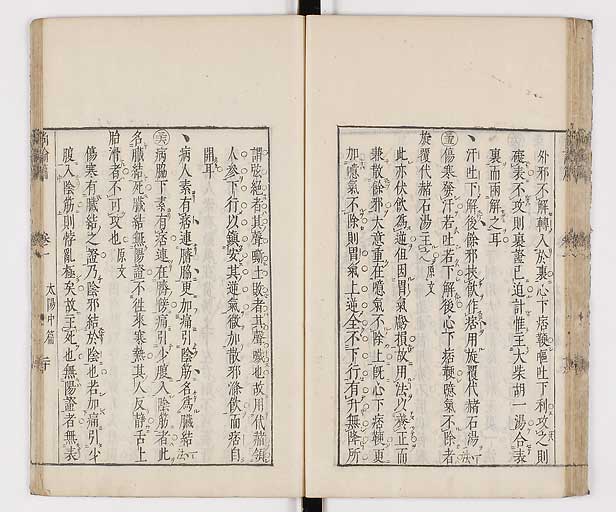 外邪不解轉入於裏心下痞鞕嘔吐下利攻之則
礙表不攻則裏證已迫計惟主大柴胡一湯合表
裏而兩解之耳
汗吐下解後餘邪挾飲作痞用旋覆代赭石湯一法
傷寒發汗若吐若下解後心下痞鞕噫氣不除者
旋覆代赭石湯主之原文
此亦伏飲為逆但因胃氣虧損故用法以養正而
兼散餘邪大意重在噫氣不除上既心下痞鞕更
加噫氣不除則胃氣上逆全不下行有升無降所
謂弦絕者其聲嘶土敗者其聲噦也故用代赭領
人參下行以鎮安其逆氣微加散邪滌飲而痞自
開耳
病人素有痞連臍脇更加痛引陰筋名為臟結一法
病脇下素有痞連在臍傍痛引少腹入陰筋者此
名臟結死臟結無陽證不往來寒熱其人反靜舌上
胎滑者不可攻也原文
傷寒有臟結之證乃陰邪結於陰也若加痛引少
腹入陰筋則悖亂極矣故主死也無陽證者無表
尚論篇 卷一 太陽中篇